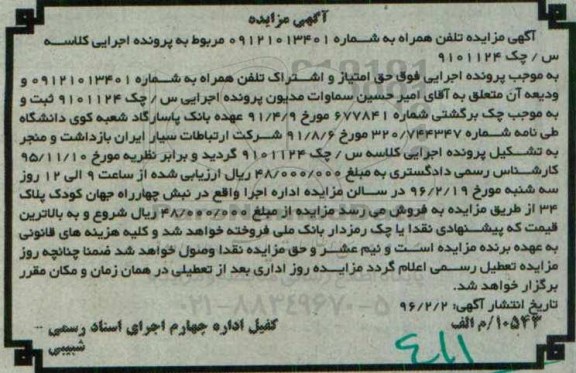 آگهی مزایده
آگهی مزایده تلفن همراه به شماره ۰۹۱۲۱۰۱۳۴۰۱ مربوط به پرونده اجرایی کلاسه
س / چک ۹۱۰۱۱۲۴
به موجب پرونده اجرایی فوق حق امتیاز و اشتراک تلفن همراه به شماره ۰۹۱۲۱۰۱۳۴۰۱ و
ودیعه آن متعلق به آقای امیر حسین سماوات مدیون پرونده اجرایی س / چک ۹۱۰۱۱۲۴ ثبت و
به موجب چک برگشتی شماره ۶۷۷۸۴۱ مورخ ۹۱/۴/۹ عهده بانک پاسارگاد شعبه کوی دانشگاه
طی نامه شماره ۳۲۰/۷۴۴۳۴۷ مورخ ۹۱/۸/۶ شرکت ارتباطات سیار ایران بازداشت و منجر
به تشکیل پرونده اجرایی کلاسه س / چک ۹۱۰۱۱۲۴ گردید و برابر نظریه مورخ ۹۵/۱۱/۱۰
کارشناس رسمی دادگستری به مبلغ ۴۸/۰۰۰/۰۰۰ ریال ارزیابی شده از ساعت ۹ الی ۱۲ روز
سه شنبه مورخ ۹۶/۲/۱۹ در سالن مزایده اداره اجرا واقع در نبش چهارراه جهان کودک پلاک
۳۴ از طریق مزایده به فروش می رسد مزایده از مبلغ ۴۸/۰۰۰/۰۰۰ ریال شروع و به بالاترین
قیمت که پیشنهادی نقدا یا چک رمزدار بانک ملی فروخته خواهد شد و کلیه هزینه های قانونی
به عهده برنده مزایده است و نیم عشر و حق مزایده نقدا وصول خواهد شد ضمنا چنانچه روز
مزایده تعطیل رسمی اعلام گردد مزایده روز اداری بعد از تعطیلی در همان زمان و مکان مقرر
برگزار خواهد شد.
تاریخ انتشار آگهی: ۹۶/۲/۲
۱۰۵۴۳/م الف
کفیل اداره چهارم اجرای اسناد رسمی -
شبیبی
۰۲۱-۸۸۳۴۹۶۷۰-۵